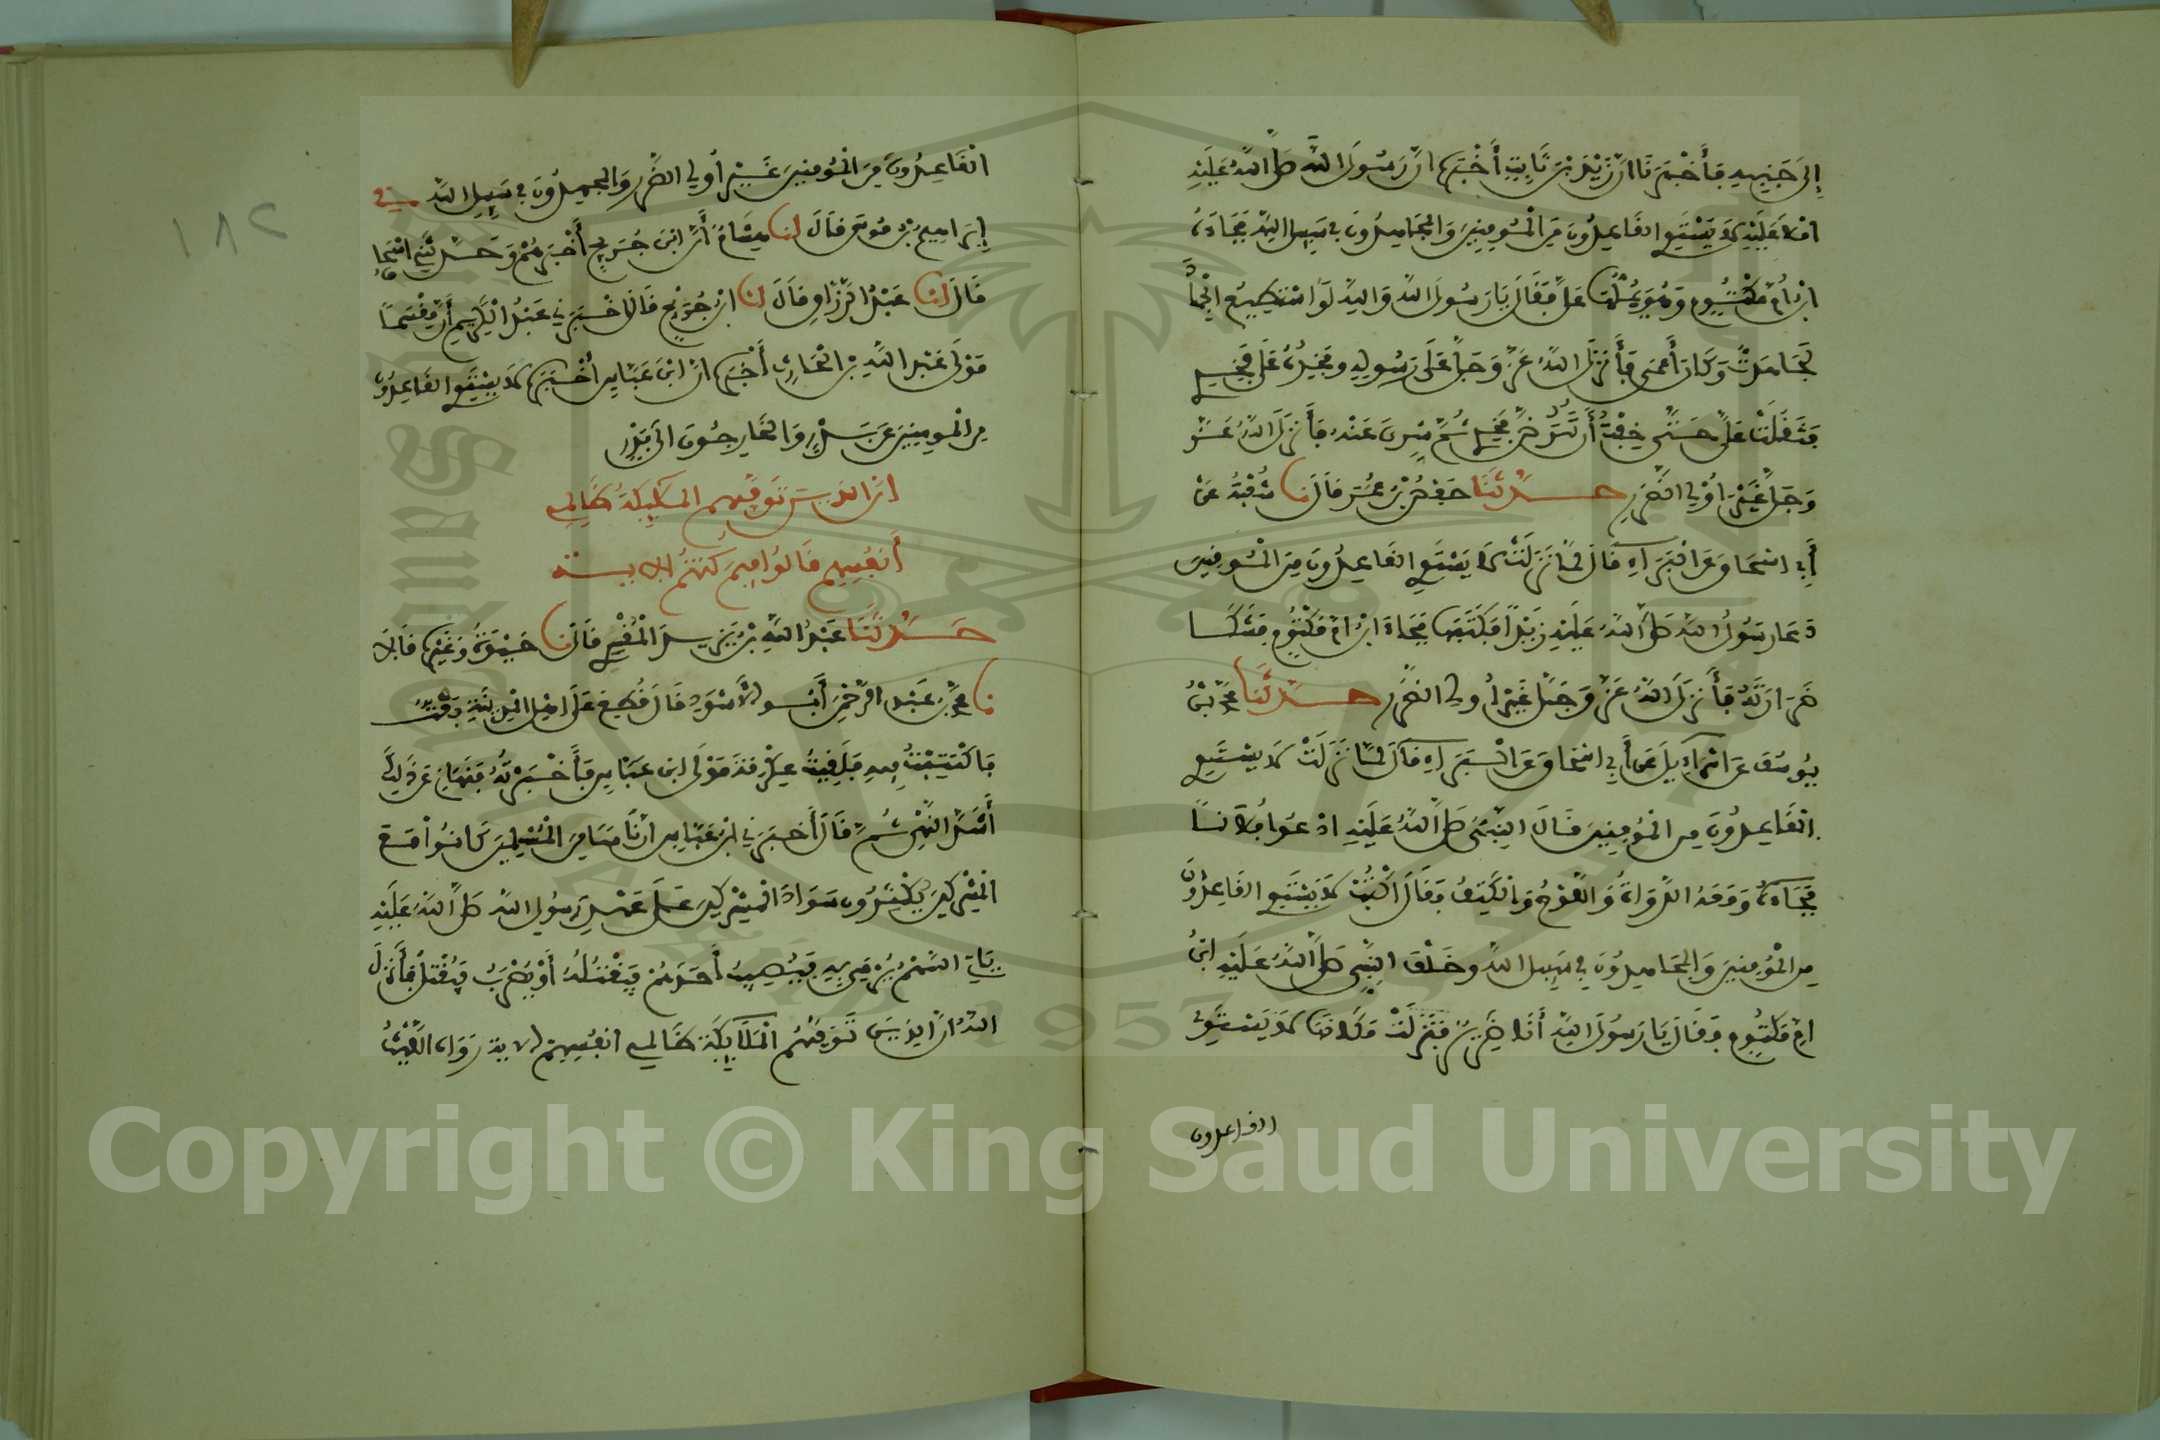 إِلَى جَنْبِهِ فَأَخْبَرَنَا أَنَّ زَيْدَ بْنَ ثَابِتٍ أَخْبَرَهُ أَنَّ رَسُولَ اللهِ صَلَّى اللهُ عَلَيْهِ
أَمْلَا عَلَيْهِ لَا يَسْتَوِي القَاعِدُونَ مِنَ الْمُؤْمِنِينَ وَالْمُجَاهِدُونَ فِي سَبِيلِ اللهِ فَجَاءَهُ
ابْنُ أُمِّ مَكْتُومٍ وَهُوَ يُمِلُّهَا عَلَيَّ فَقَالَ يَا رَسُولَ اللهِ وَاللهِ لَوْ أَسْتَطِيعُ الْجِهَادَ
لَجَاهَدْتُ وَكَانَ أَعْمَى فَأَنْزَلَ اللهُ عَزَّ وَجَلَّ عَلَى رَسُولِهِ وَفَخِذُهُ عَلَى فَخِذِي
فَثَقُلَتْ عَلَيَّ حَتَّى خِفْتُ أَنْ تُرَضَّ فَخِذِي ثُمَّ سُرِّيَ عَنْهُ فَأَنْزَلَ اللهُ عَزَّ
وَجَلَّ غَيْرَ أُوْلِي الضَّرَرِ حَدَّثَنَا حَفْصُ بْنُ عُمَرَ قَالَ نا شُعْبَةُ عَنْ
أَبِي إِسْحَاقَ عَنِ الْبَرَاءِ قَالَ لَمَّا نَزَلَتْ لَا يَسْتَوِي القَاعِدُونَ مِنَ الْمُؤْمِنِينَ
دَعَا رَسُولُ اللهِ صَلَّى اللهُ عَلَيْهِ زَيْدًا فَكَتَبَهَا فَجَاءَ ابْنُ أُمِّ مَكْتُومٍ فَشَكَا
ضَرَارَتَهُ فَأَنْزَلَ اللهُ عَزَّ وَجَلَّ غَيْرَ أُولِي الضَّرَرِ حَدَّثَنَا مُحَمَّدُ بْنُ
يُوسُفَ عَنْ إِسْرَاءِيلَ عَنْ أَبِي إِسْحَاقَ عَنِ الْبَرَاءِ قَالَ لَمَّا نَزَلَتْ لَا يَسْتَوِي
الْقَاعِدُونَ مِنَ الْمُؤْمِنِينَ قَالَ النَّبِيُّ صَلَّى اللهُ عَلَيْهِ ادْعُوا فُلَانًا
فَجَاءَهُ وَمَعَهُ الدَّوَاةُ وَاللَّوْحُ وَالْكَتِفُ فَقَالَ اكْتُبْ لَا يَسْتَوِي القَاعِدُونَ
مِنَ الْمُؤْمِنِينَ وَالْمُجَاهِدُونَ فِي سَبِيلِ اللهِ وَخَلْفَ النَّبِيِّ صَلَّى اللهُ عَلَيْهِ ابْنُ
أُمِّ مَكْتُومٍ فَقَالَ يَا رَسُولَ اللهِ أَنَا ضَرِيرٌ فَنَزَلَتْ مَكَانَهَا لَا يَسْتَوِي
القاعدون
الْقَاعِدُونَ مِنَ الْمُؤْمِنِينَ غَيْرَ أُولِي الضَّرَرِ وَالْمُجَاهِدُونَ فِي سَبِيلِ اللهِ
إِبْرَاهِيمُ بْنُ مُوسَى قَالَ أنا هِشَامٌ أَنَّ ابْنَ جُرَيْجٍ أَخْبَرَهُمْ وَحَدَّثَنِي إِسْحَاقُ
قَالَ أنا عَبْدُ الرَّزَّاقِ قَالَ أنا ابْنُ جُرَيْجٍ قَالَ أَخْبَرَنِي عَبْدُ الْكَرِيمِ أَنَّ مِقْسَمًا
مَوْلَى عَبْدِ اللهِ بْنِ الْحَارِثِ أَخْبَرَهُ أَنَّ ابْنَ عَبَّاسٍ أَخْبَرَهُ لَا يَسْتَوِي القَاعِدُونَ
مِنَ الْمُومِنِينَ عَنْ بَدْرٍ وَالْخَارِجُونَ إِلَى بَدْرٍ
إِنَّ الَّذِينَ تَوَفَّيهُمُ الْمَلَائِكَةُ ظَالِمِي
أَنْفُسِهِمْ قَالُوا فِيمَ كُنْتُمْ الآية
حَدَّثَنَا عَبْدُ اللهِ بْنُ يَزِيدَ الْمُقْرِي قَالَ نا حَيْوَةُ وَغَيْرُهُ قَالَا
نا مُحَمَّدُ بْنُ عَبْدِ الرَّحْمَنِ أَبُو الْأَسْوَدِ قَالَ قُطِعَ عَلَى أَهْلِ الْمَدِينَةِ بَعْثٌ
فَاكْتُتِبْتُ فِيهِ فَلَقِيتُ عِكْرِمَةَ مَوْلَى ابْنِ عَبَّاسٍ فَأَخْبَرْتُهُ فَنَهَانِي عَنْ ذَلِكَ
أَشَدَّ النَّهْيِ ثُمَّ قَالَ أَخْبَرَنِي ابْنُ عَبَّاسٍ أَنَّ نَاسًا مِنَ الْمُسْلِمِينَ كَانُوا مَعَ
الْمُشْرِكِينَ يُكَثِّرُونَ سَوَادَ الْمُشْرِكِينَ عَلَى عَهْدِ رَسُولِ اللهِ صَلَّى اللهُ عَلَيْهِ
يَاتِي السَّهْمُ يُرْمَى بِهِ فَيُصِيبُ أَحَدَهُمْ فَيَقْتُلُهُ أَوْ يُضْرَبُ فَيُقْتَلُ فَأَنْزَلَ
اللهُ إِنَّ الَّذِينَ تَوَفَّيهُمُ الْمَلَائِكَةُ ظَالِمِي أَنْفُسِهِمْ الآية رَوَاهُ اللَّيْثُ
١٨٢
Copyright © King Saud University
1957